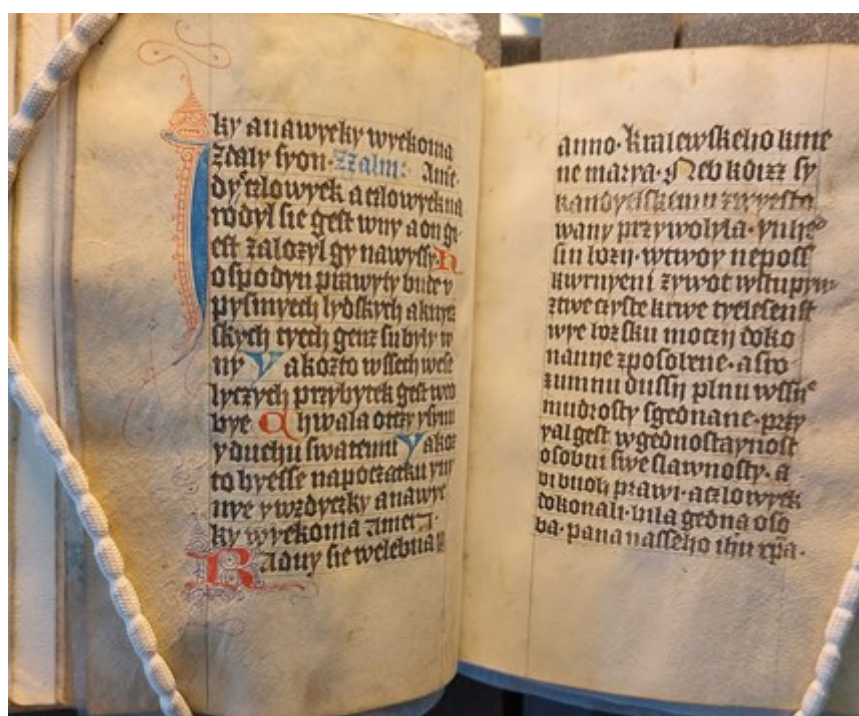 ky anawyeky wyekoma
zdaly syon. Zzalm: Amē.
dy czlowyek aczlowyek na
rodyl sie gest wny aon gy
est zalozyl gy nawyssy. H
ospodyn prawyty bude v
pysmyech lydskych aknyez
skych tyech genz su byly w
ny Yakozto wssech wese
lyczych przybytek gest wto
bye Chwala otczy ysynu
yduchu swatemu Yakoz
to byesse napoczatku yny
nye ywzdyczky anawye
ky wyekoma Amen.
Raduy sie welebna p
anno. kralewskeho kme
ne marya. Neb kdizz sy
kandyelskemu zwyesto
wany przywolyla. ynhed
sin bozy. wtwoy neposs
kwrnyeni zywot wstupyw
ztwe czyste krwe tyelesenst
wye bozsku moczy doko
nanye zposobene. asro
zumnu dussy plnu wssye
mudrosty sgednane. przy
yal gest wgednostaynost
osobni swe slawnosty. a
bi buoh prawi. aczlowyek
dokonali. bila gedna oso
ba. pana nasseho ihu xpa.